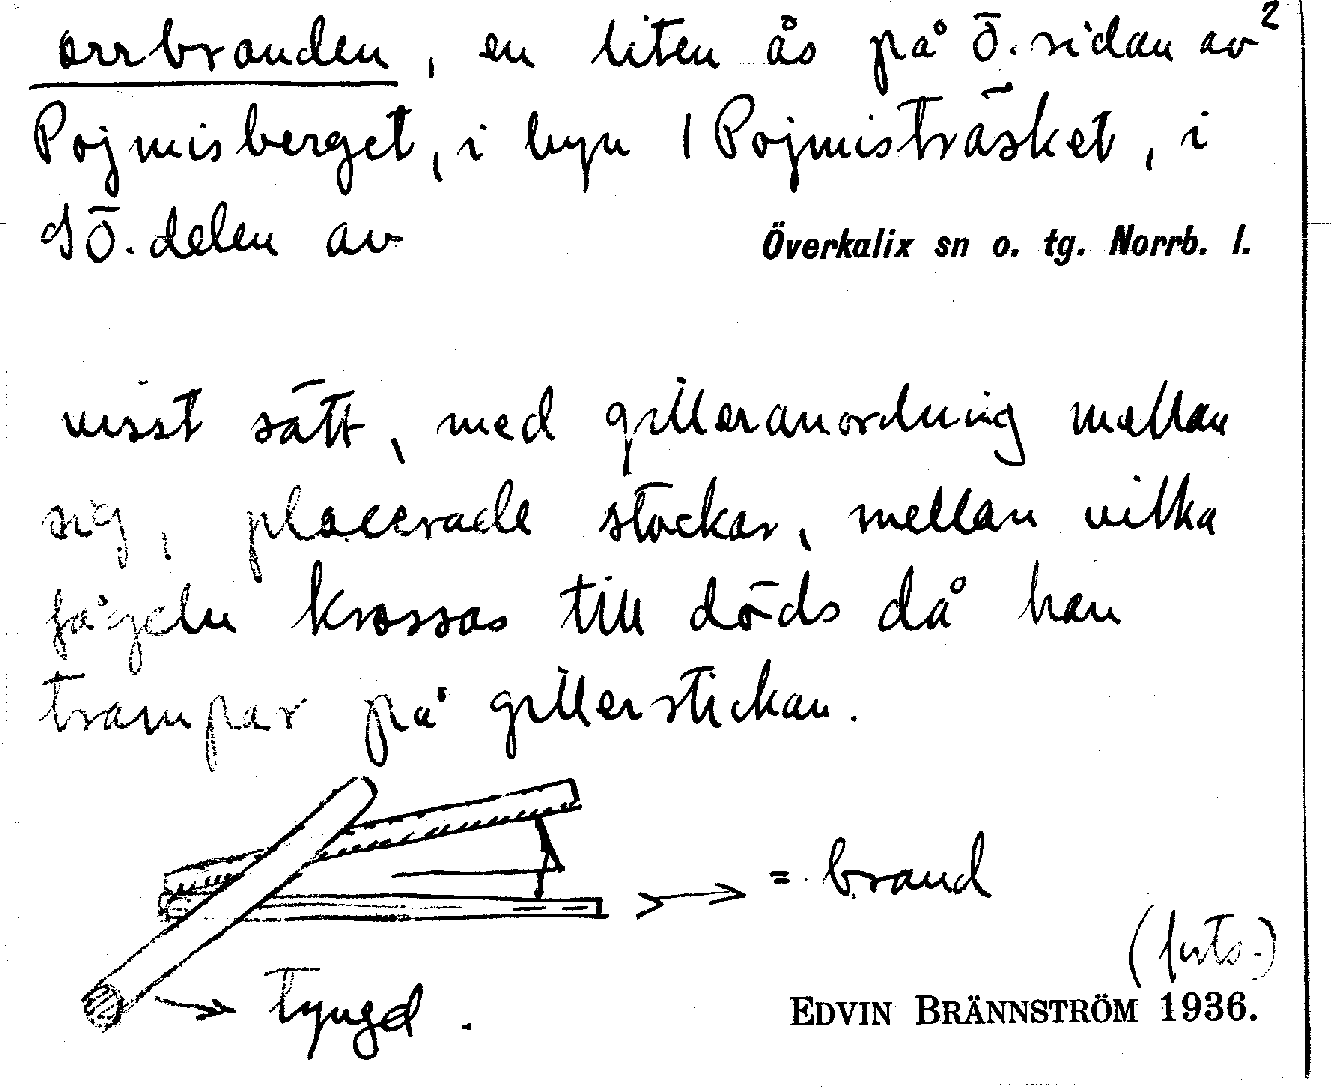 orrbranden, en liten ås på Ö. sidan av 2
Pojmisberget, i byn | Pojmisträsket, i
SÖ. delen av Överkalix sn o. tg. Norrb. l.
visst sätt, med gilleranordning mellan
sig, placerade stockar, mellan vilka
fågeln krossas till döds då han
trampar på gillerstickan.
= brand
(forts.)
tyngd.
EDVIN BRÄNNSTRÖM 1936.